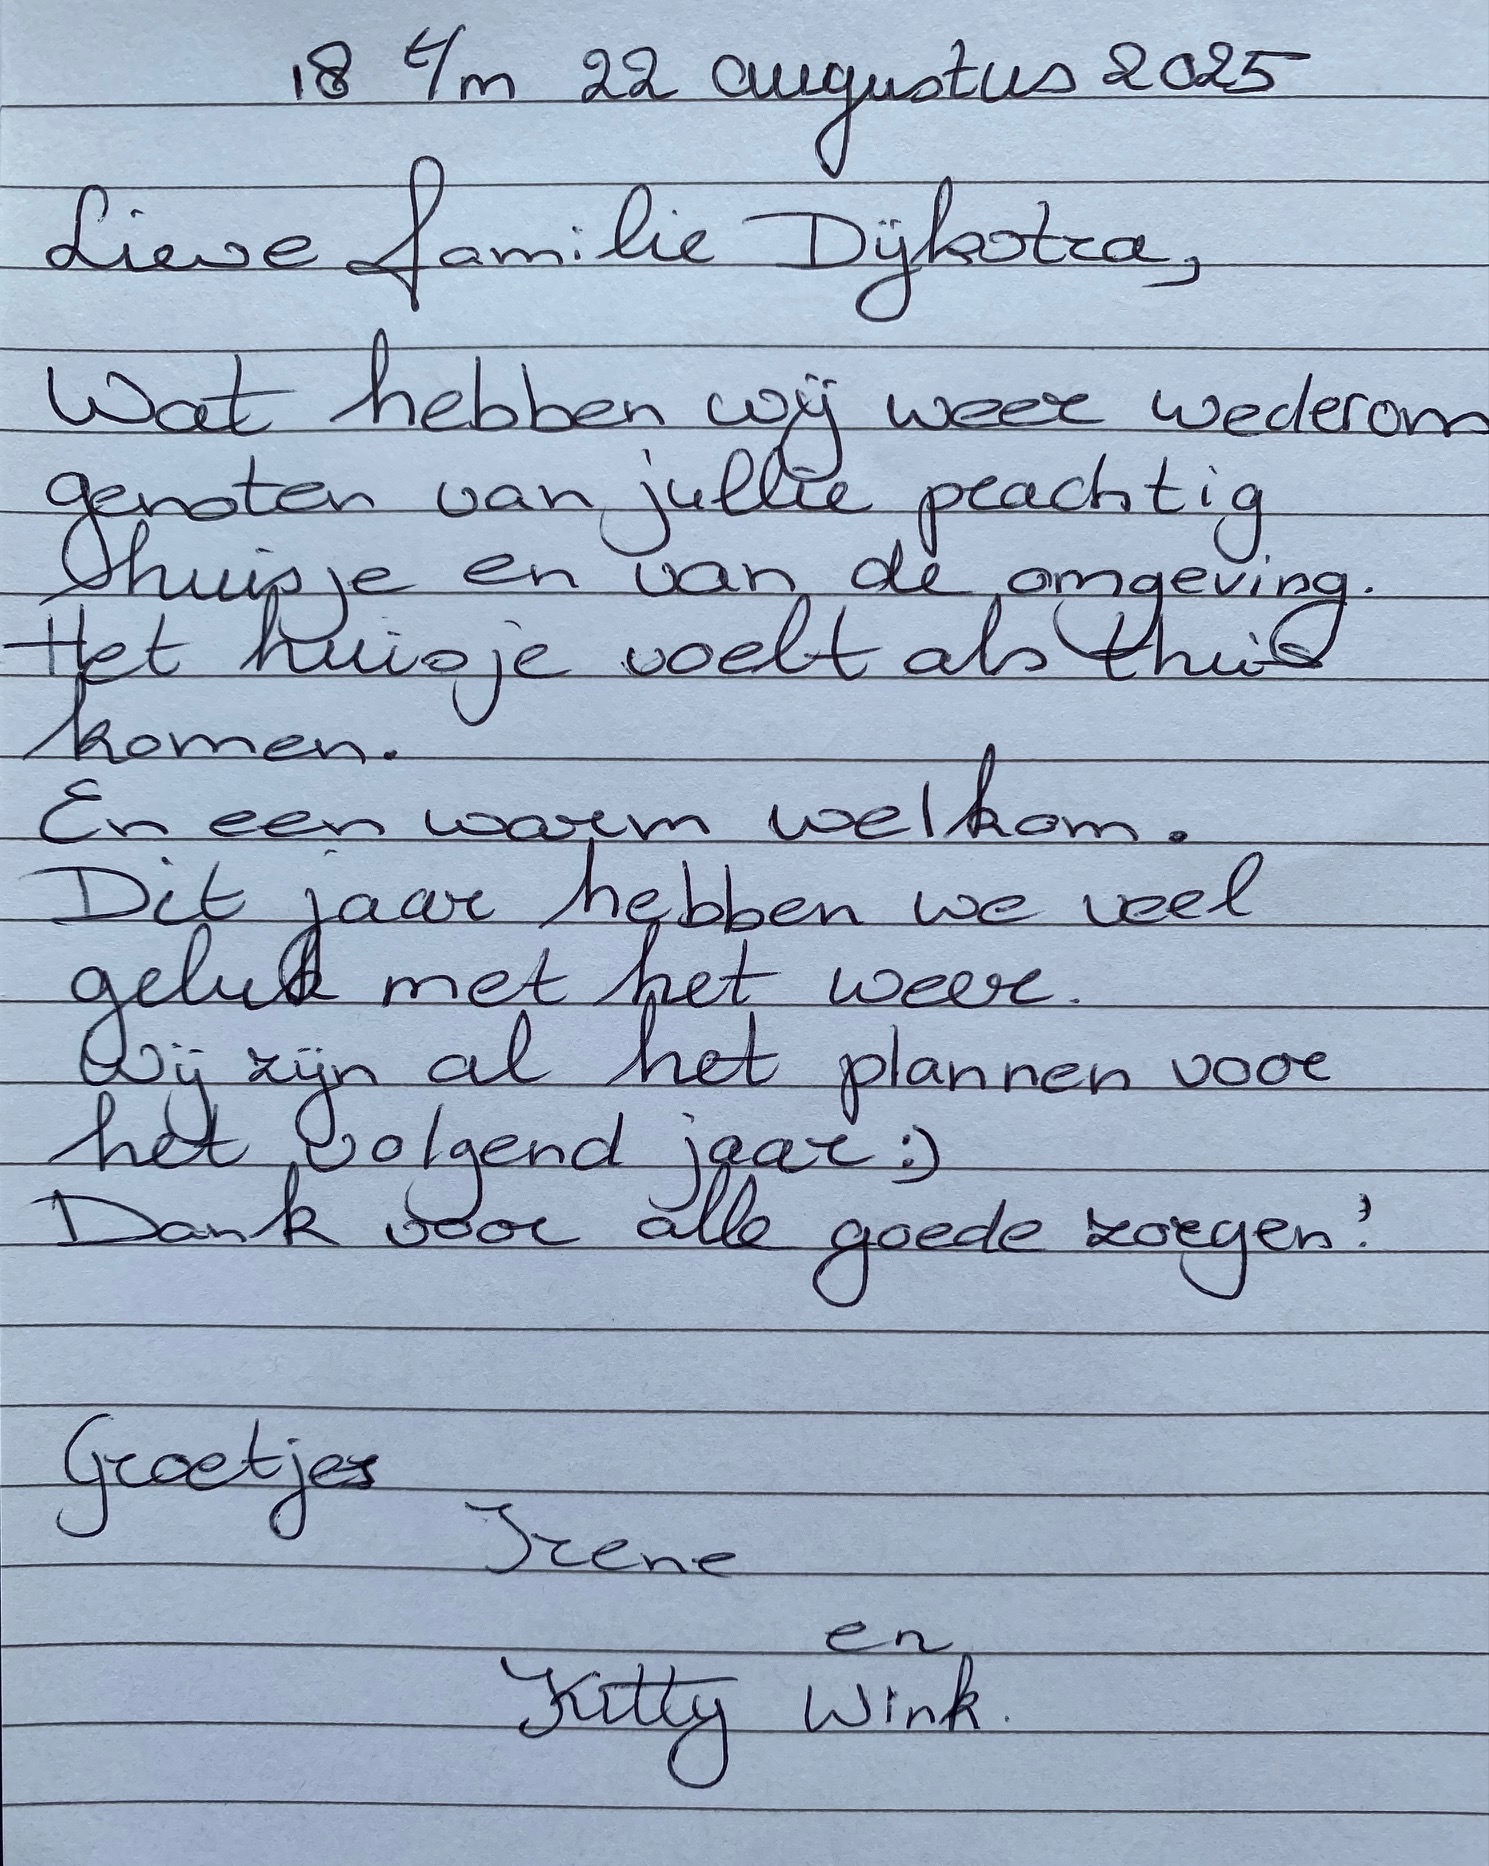 18 t/m 22 augustus 2025
Lieve familie Dijkstra,
Wat hebben wij weer wederom
genoten van jullie prachtig
huisje en van de omgeving.
Het huisje voelt als thuis
komen.
En een warm welkom.
Dit jaar hebben we veel
geluk met het weer.
Wij zijn al het plannen voor
het volgend jaar :)
Dank voor alle goede zorgen!
Groetjes
Irene
en
Kitty Wink.